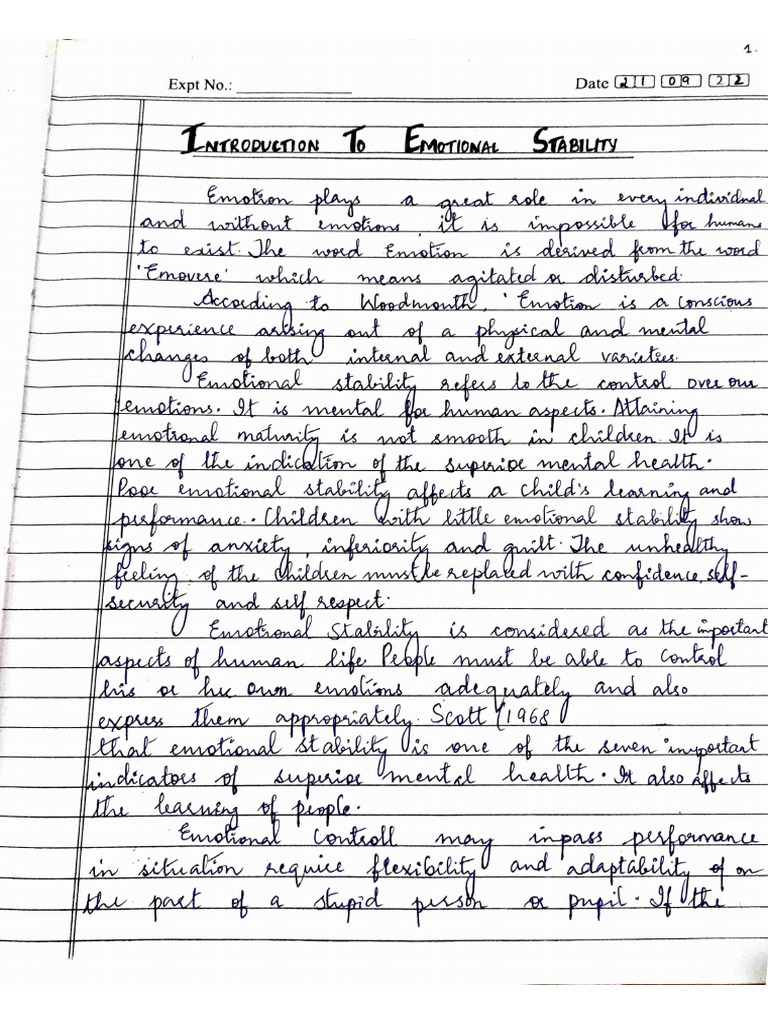 1.
Expt No.: ____________ Date 21 09 22
INTRODUCTION TO EMOTIONAL STABILITY
Emotion plays a great role in every individual
and without emotions, it is impossible for humans
to exist. The word Emotion is derived from the word
'Emovere' which means agitated or disturbed.
According to Woodmouth, 'Emotion is a conscious
experience arising out of a physical and mental
changes of both internal and external varieties.
Emotional stability refers to the control over our
emotions. It is mental for human aspects. Attaining
emotional maturity is not smooth in children. It is
one of the indication of the superior mental health.
Poor emotional stability affects a child's learning and
performance. Children with little emotional stability show
signs of anxiety, inferiority and guilt. The unhealthy
feeling of the children must be replaced with confidence, self-
security and self respect.
Emotional Stability is considered as the important
aspects of human life People must be able to control
his or her own emotions adequately and also
express them appropriately. Scott (1968
that emotional stability is one of the seven important
indicators of superior mental health. It also affects
the learning of people.
Emotional Controll may inpass performance
in situation require flexibility and adaptability of on
the part of a stupid person or pupil. If the